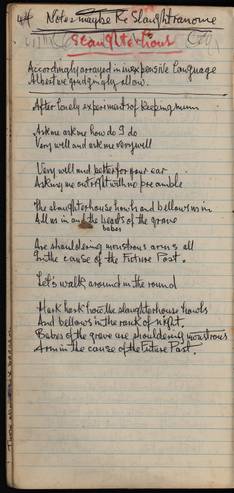 Notes maybe Re Slaught
Slaughterhous
Accordingly arrayed in inexpensive language
Albeit we grudgingly allow.
After lonely experiments of keeping mum
Ask me ask me how do I do
Very well and ask me very well
Very well and better for your ear
Asking me outright with no preamble
The slaughterhouse howls and bellows us in
All us in and the hearts of the grave
babes
Are shouldering monstrous arms all
In the cause of the Future Past.
Let's walk around in the round
Hark hark how the slaughterhouse howls
And bellows in the rank of night.
Babes of the grave are shouldering monstrous
Arms in the cause of the Future Past.